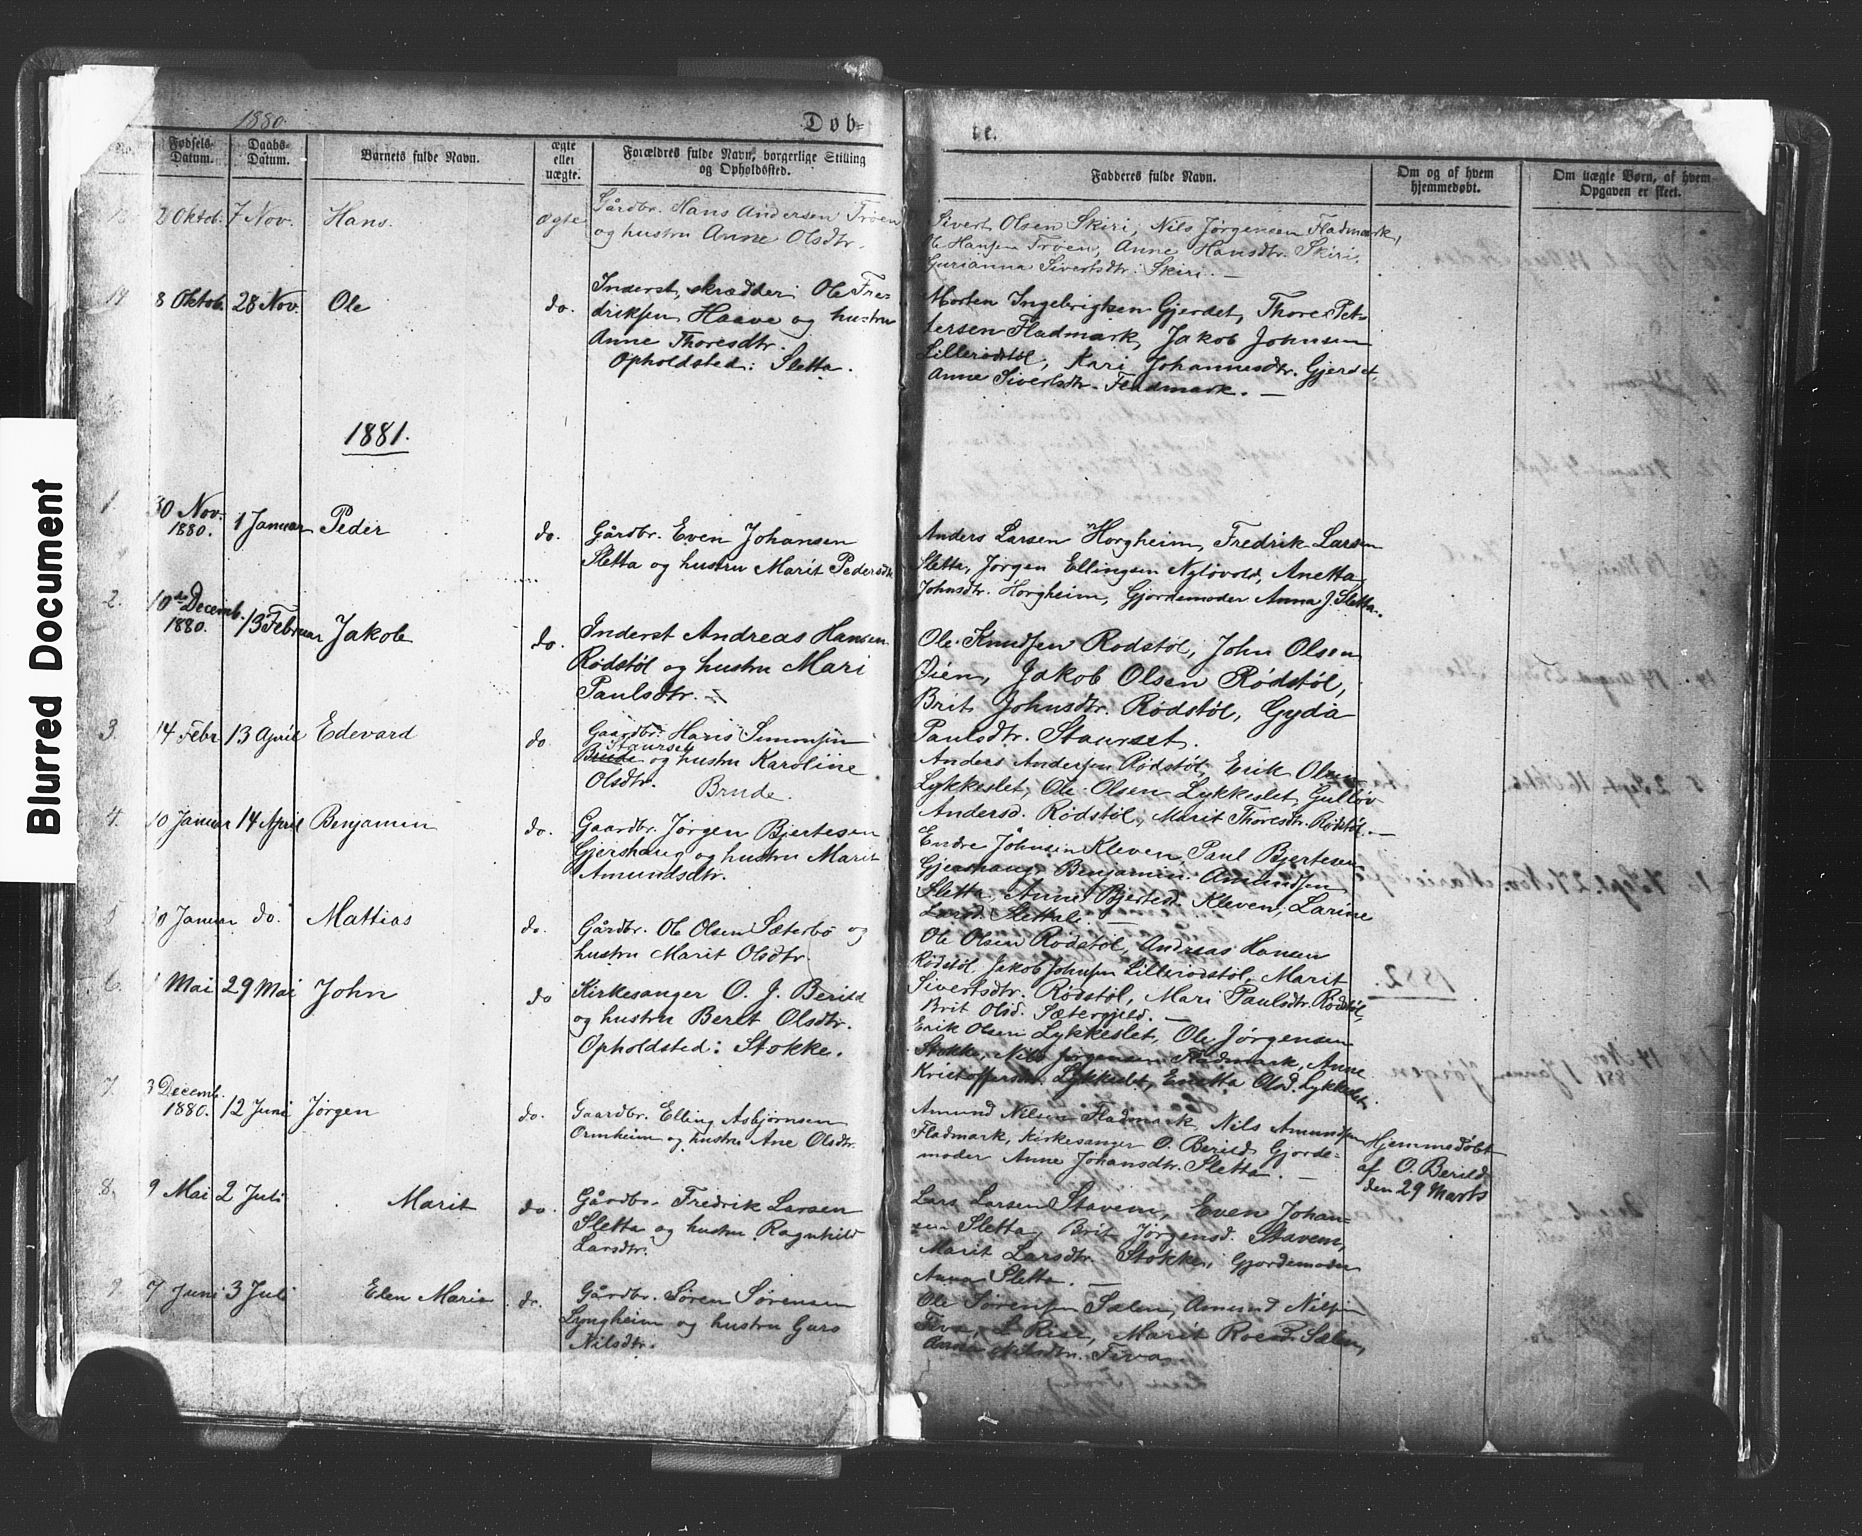 Blurred Document
1880
Døbte.
No.
Fødsels-
Datum.
Daabs-
Datum.
Barnets fulde Navn.
ægte
eller
uægte.
Forældres fulde Navn, borgerlige Stilling
og Opholdssted.
Fadderes fulde Navn.
Om og af hvem
hjemmedøbt.
Om uægte Børn, af hvem
Opgaven er skeet.
2 Oktob. 7 Nov. Hans. ægte
Gårdbr. Hans Andersen Troen
og hustru Anne Olsdtr.
Sivert Olsen Skiri, Nils Jørgensen Fladmark,
Ole Hansen Troen, Anne Hansdtr. Skiri.
Gurianna Sivertsdtr. Skiri. —
8 Oktob. 28 Nov. Ole do.
Inderst, skrædder Ole Fre-
driksen Haave og hustru
Anne Thoresdtr.
Opholdsted: Sletta.
Morten Ingebrigtsen Gjerdet, Thore Pet-
tersen Fladmark, Jakob Johnsen
Lillerødstøl, Kari Johannesdtr. Gjerdet,
Anne Sivertsdtr. Fladmark. —
1881.
1. 30 Nov.
1880. 1 Januar Peder do.
Gårdbr. Even Johansen
Sletta og hustru Marit Pedersdtr
Anders Larsen Horgheim, Fredrik Larsen
Sletta, Jørgen Ellingsen Nyløvold, Anetta
Johnsdtr. Horgheim, Gjordemoder Anna J. Sletta.
2. 10de Decemb.
1880. 13 Februar Jakob do.
Inderst Andreas Hansen
Rødstøl og hustru Mari
Paulsdtr. —
Ole Knudsen Rødstøl, John Olsen
Øien, Jakob Olsen Rødstøl,
Brit Johnsdtr. Rødstøl, Gyda
Paulsdtr. Stavrset.
3. 14 Febr. 13 April Edevard do
Gaardbr. Hans Simonsen
Stavrset
Brude og hustru Karoline
Olsdtr. Brude.
Anders Andersen Rødstøl, Erik Olsen
Lykkeslet, Ole Olsen Lykkeslet, Gulløv
Andersd. Rødstøl, Marit Thoresdtr. Rødstøl. —
4. 10 Januar 14 April Benjamin do.
Gaardbr. Jørgen Bjertesen
Gjershaug og hustru Marit
Amundsdtr.
Endre Johnsen Kleven, Paul Bjertesen
Gjershaug, Benjamin Amundsen
Sletta, Anne Bjertesd. Kleven, Larine
Larsd. Slettali. —
5. 10 Januar do. Mattias do.
Gårdbr. Ole Olsen Sæterbø og
hustru Marit Olsdtr
Ole Olsen Rødstøl, Andreas Hansen
Rødstøl, Jakob Johnsen Lillerødstøl, Marit
Sivertsdtr. Rødstøl, Mari Paulsdtr. Rødstøl,
Brit Olsd. Sætergjeld. —
6. 1 Mai 29 Mai John do
Kirkesanger O. J. Berild
og hustru Beret Olsdtr.
Opholdsted: Stokke.
Erik Olsen Lykkeslet, Ole Jørgensen
Stokke, Nils Jørgensen Fladmark, Anne
Kristoffersdtr. Lykkeslet, Enetta Olsd. Lykkeslet
7. 3 Decemb.
1880. 12 Juni Jørgen do.
Gaardbr. Elling Asbjørnsen
Ormheim og hustru Ane Olsdtr.
Amund Nilsen Fladmark, Nils Amundsen
Fladmark, Kirkesanger O. Berild, Gjorde-
moder Anne Johansdtr. Sletta. —
Hjemmedøbt
af O. Berild
den 29 Marts
8. 9 Mai 2 Juli Marit do.
Gårdbr. Fredrik Larsen
Sletta og hustru Ragnhild
Larsdtr.
Lars Larsen Stavem, Even Johan-
sen Sletta, Brit Jørgensd. Stavem,
Marit Larsdtr. Stokke, Gjordemoder
Anna Sletta. —
9. 7 Juni 3 Juli Elen Marie do.
Gårdbr. Søren Sørensen
Lyngheim og hustru Guro
Nilsdtr.
Ole Sørensen Sælen, Amund Nilsen
Tiva, L. Rise, Marit Roesd. Sælen,
Anne Nilsdtr. Tiva.